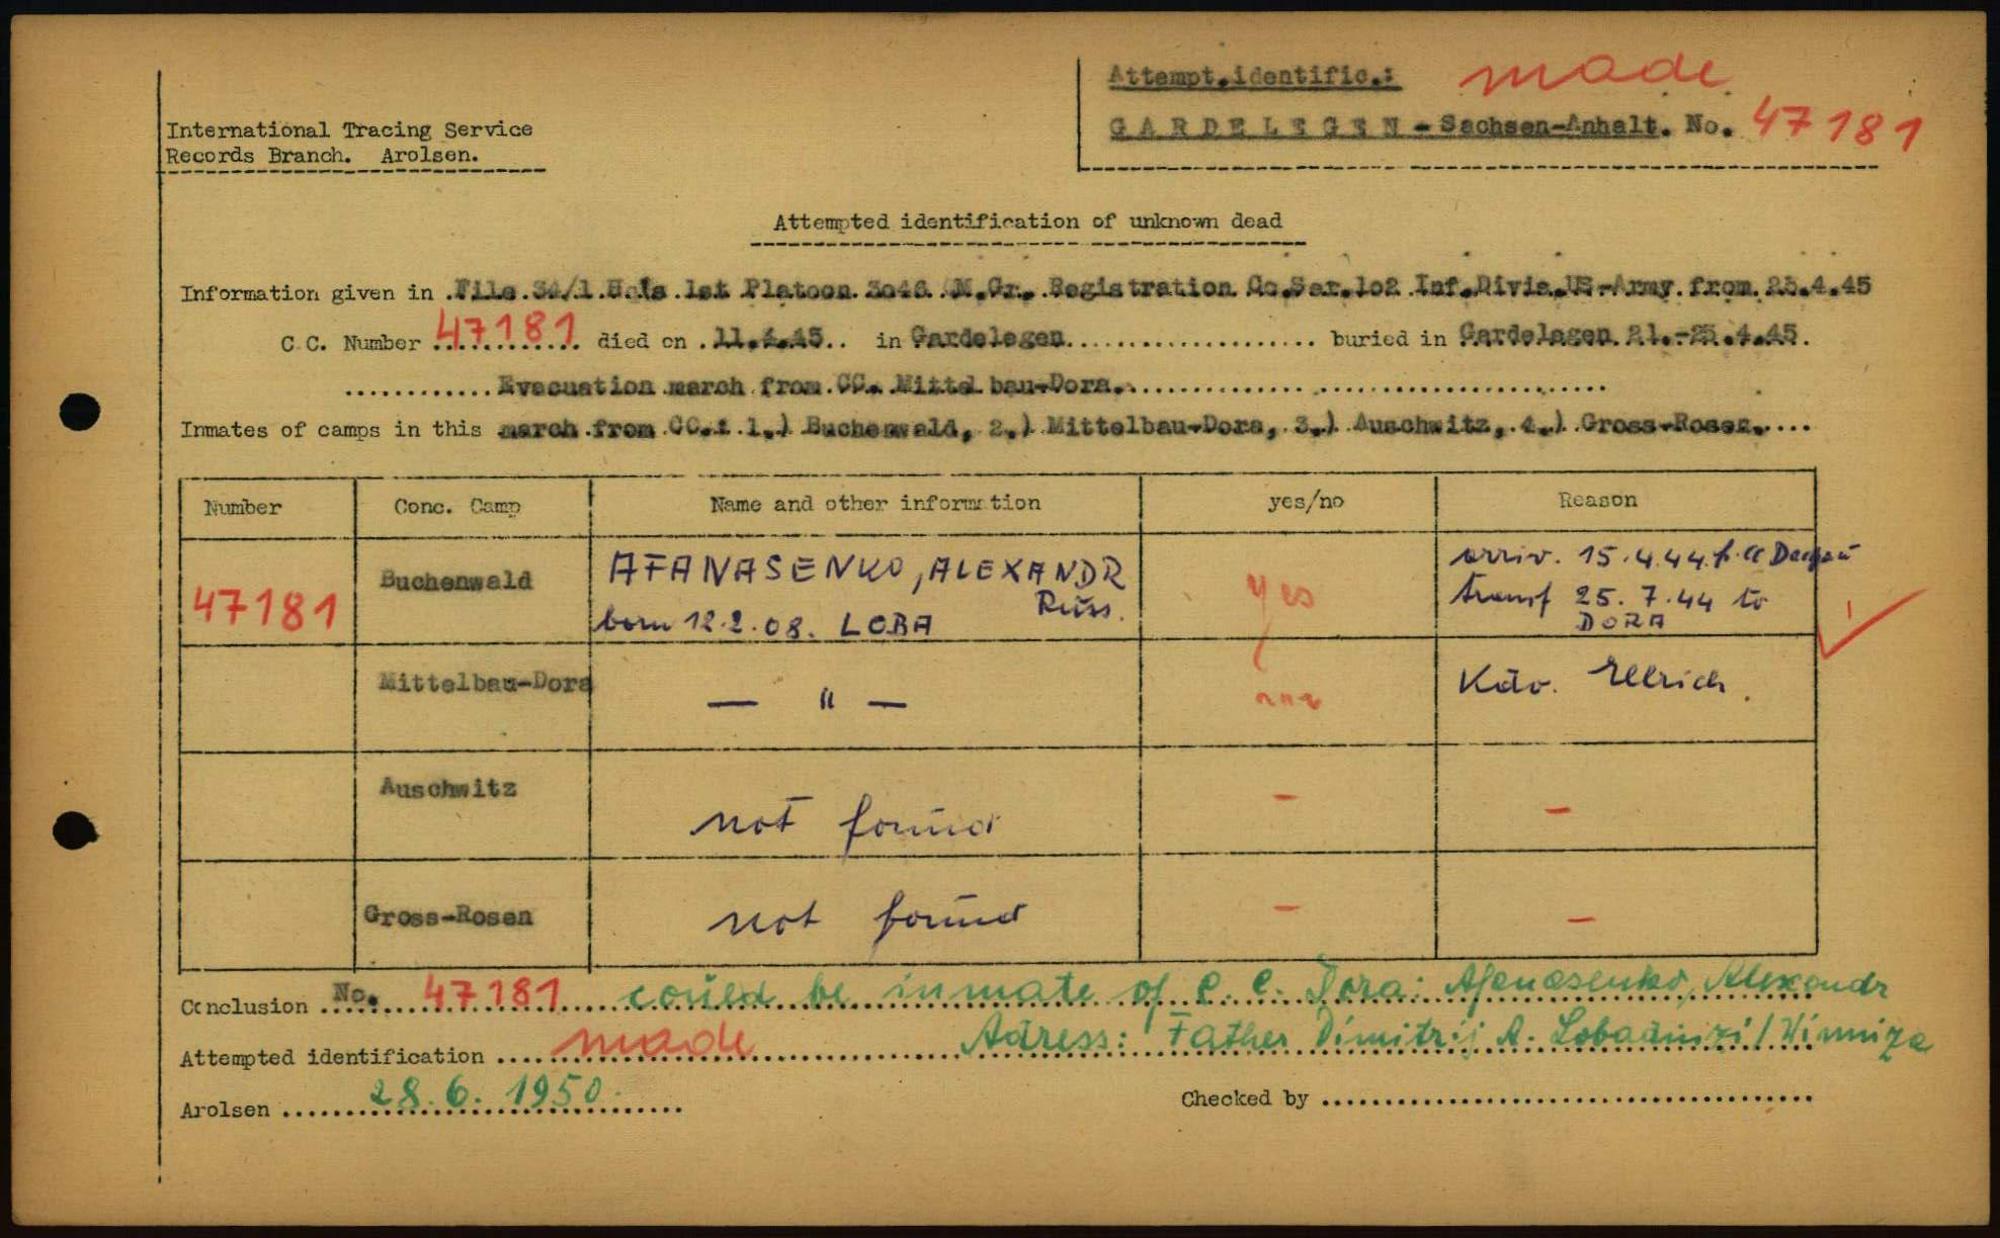 Attempt.identific.: made
GARDELEGEN - Sachsen-Anhalt. No. 47181
International Tracing Service
Records Branch. Arolsen.
Attempted identification of unknown dead
Information given in File 34/1 1st Platoon 3046 Gr. Registration Co. 102 Inf. US-Army from 25.4.45
C.C. Number 47181 died on 11.4.45 in Gardelegen buried in Gardelegen 21.-25.4.45.
Evacuation march from CC. Mittelbau-Dora.
Inmates of camps in this march from CC.: 1.) Buchenwald, 2.) Mittelbau-Dora, 3.) Auschwitz, 4.) Gross-Rosen.
Number Conc. Camp Name and other information yes/no Reason
47181 Buchenwald AFANASENKO, ALEXANDR yes arriv. 15.4.44 f. CC Dachau
Russ. transf 25.7.44 to
born 12.2.08. LOBA DORA
Mittelbau-Dora — " — Kdo. Ellrich.
Auschwitz not found - -
Gross-Rosen not found - -
Conclusion No. 47181 could be inmate of C.C. Dora: Afanasenko, Alexandr
Attempted identification made Adress: Father Dimitrij A. / Winniza
Arolsen 28.6.1950. Checked by